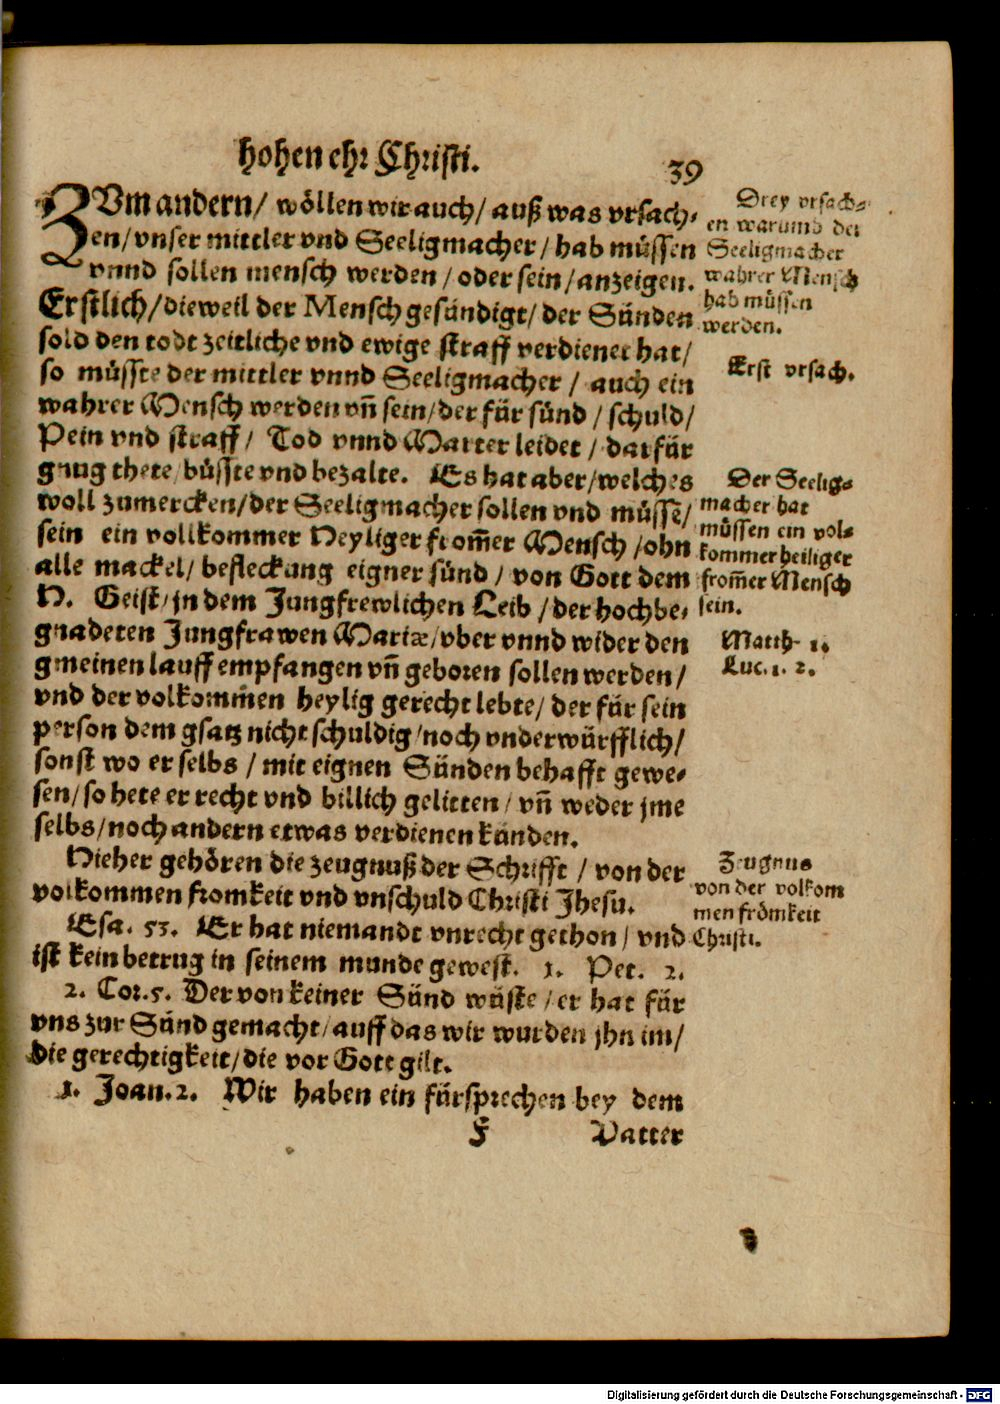 hohen ehr Christi.
39
ZUm andern/ wöllen wir auch/ auß was vrsach-
en/ vnser mittler vnd Seeligmacher/ hab müssen
vnnd sollen mensch werden/ oder sein/ anzeigen.
Erstlich/ dieweil der Mensch gesündigt/ der Sünden
sold den todt zeitliche vnd ewige straff verdienet hat/
so müsste der mittler vnnd Seeligmacher/ auch ein
wahrer Mensch werden vn̄ sein/ der für sünd/ schuld/
Pein vnd straff/ Tod vnnd Marter leidet/ dafür
gnug thete/ büsste vnd bezalte. Es hat aber/ welches
woll zumercken/ der Seeligmacher sollen vnd müssē/
sein ein vollkommer Heyliger from̄er Mensch/ ohn
alle mackel/ befleckung eigner sünd/ von Gott dem
H. Geist/ jn dem Jungfrewlichen Leib/ der hochbe-
gnadeten Jungfrawen Mariæ/ vber vnnd wider den
gmeinen lauff empfangen vn̄ geboren sollen werden/
vnd der volkom̄en heylig gerecht lebte/ der für sein
person dem gsatz nicht schuldig/ noch vnderwürfflich/
sonst wo er selbs/ mit eignen Sünden behafft gewe-
sen/ so hete er recht vnd billich gelitten/ vn̄ weder jme
selbs/ noch andern etwas verdienen künden.
Hieher gehören die zeugnuß der Schrifft/ von der
volkommen fromkeit vnd vnschuld Christi Jhesu.
Esa. 53. Er hat niemandt vnrecht gethon/ vnd
ist kein betrug in seinem munde gewest. 1. Pet. 2.
2. Cor. 5. Der von keiner Sünd wüste/ er hat für
vns zur Sünd gemacht/ auff das wir wurden jhn im/
die gerechtigkeit/ die vor Gott gilt.
1. Joan. 2. Wir haben ein fürsprechen bey dem
F
Vatter
Drey vrsach-
en warumb der
Seeligmacher
wahrer Mensch
hab müssen
werden.
Erst vrsach.
Der Seelig-
macher hat
müssen ein vol-
kommer heiliger
from̄er Mensch
sein.
Matth. 1.
Luc. 1. 2.
Zeugnus
von der volkom
men frömkeit
Christi.
Digitalisierung gefördert durch die Deutsche Forschungsgemeinschaft - DFG